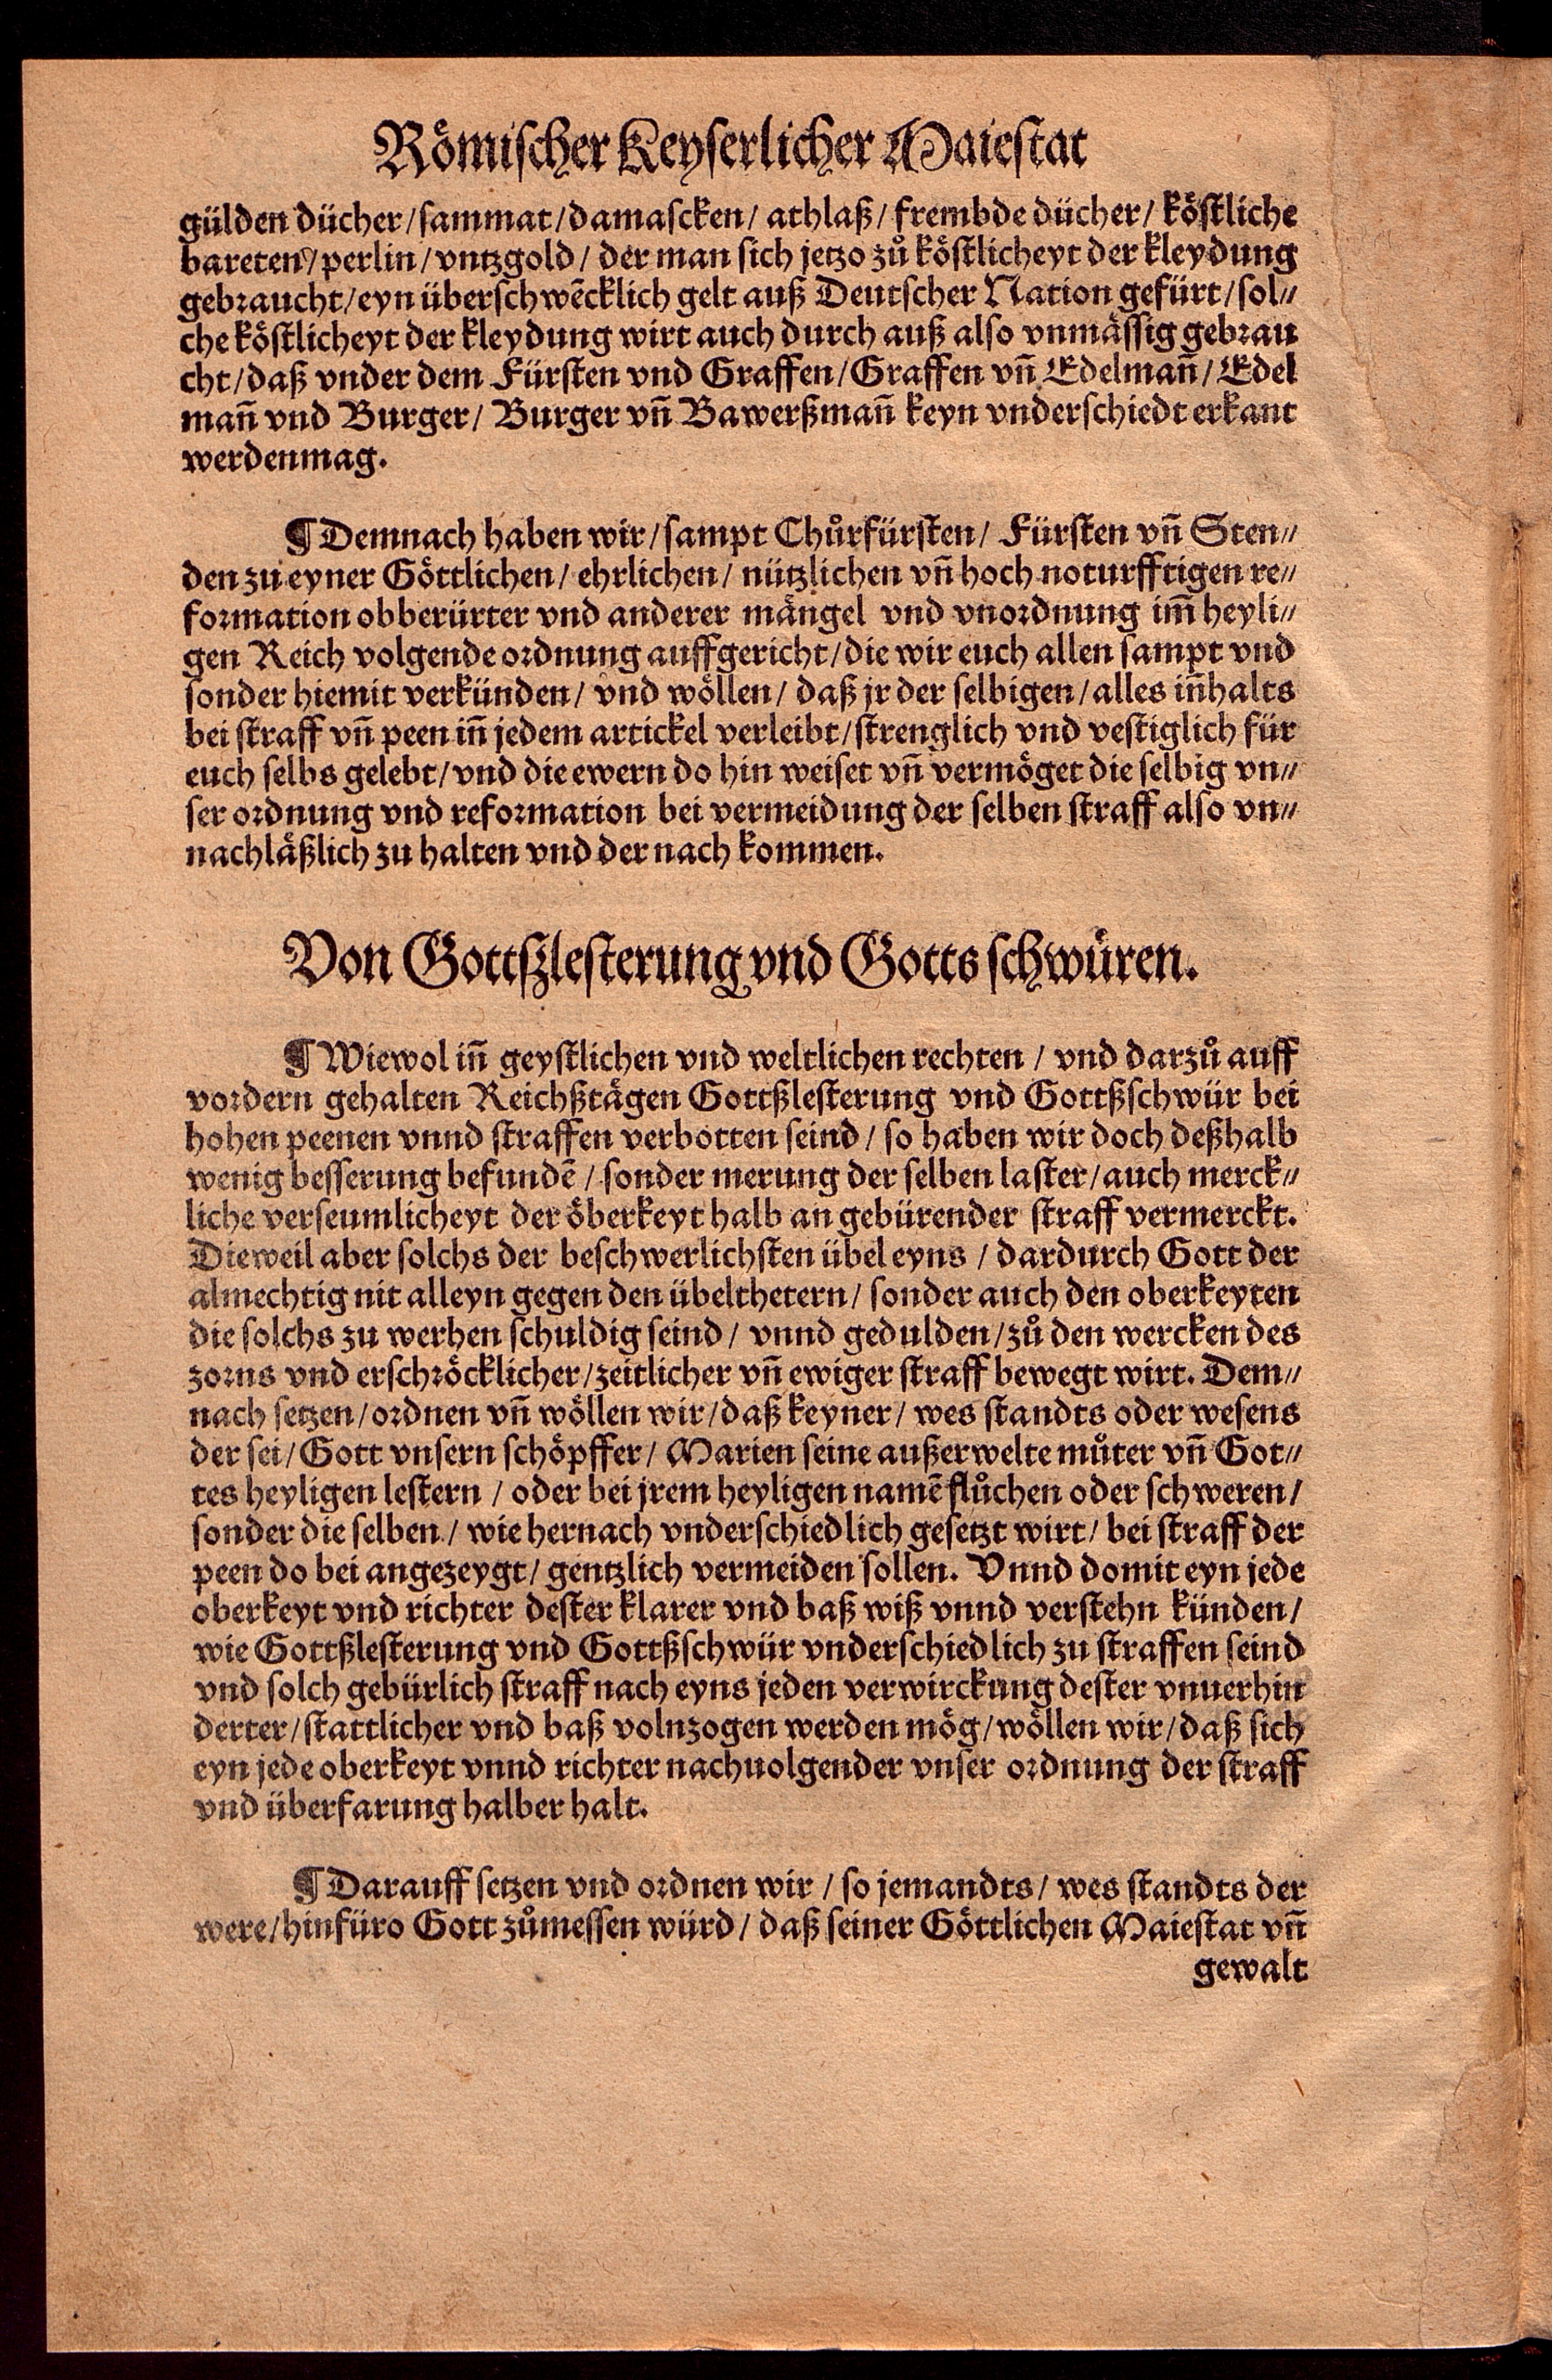 Römischer Keyserlicher Maiestat
gülden dücher/ sammat/ damascken/ athlaß/ frembde dücher/ köstliche
bareten/ perlin/ vntzgold/ der man sich jetzo zů köstlicheyt der kleydung
gebraucht/ eyn überschwēcklich gelt auß Deutscher Nation gefürt/ sol⸗
che köstlicheyt der kleydung wirt auch durch auß also vnmässig gebrau
cht/ daß vnder dem Fürsten vnd Graffen/ Graffen vñ Edelmañ/ Edel
mañ vnd Burger/ Burger vñ Bawerßmañ keyn vnderschiedt erkant
werdenmag.
¶ Demnach haben wir/ sampt Chůrfürsten/ Fürsten vñ Sten⸗
den zu eyner Göttlichen/ ehrlichen/ nützlichen vñ hoch noturfftigen re⸗
formation obberürter vnd anderer mängel vnd vnordnung im̄ heyli⸗
gen Reich volgende ordnung auffgericht/ die wir euch allen sampt vnd
sonder hiemit verkünden/ vnd wöllen/ daß jr der selbigen/ alles iñhalts
bei straff vñ peen iñ jedem artickel verleibt/ strenglich vnd vestiglich für
euch selbs gelebt/ vnd die ewern do hin weiset vñ vermöget die selbig vn⸗
ser ordnung vnd reformation bei vermeidung der selben straff also vn⸗
nachläßlich zu halten vnd der nach kommen.
Von Gottßlesterung vnd Gotts schwüren.
¶ Wiewol iñ geystlichen vnd weltlichen rechten / vnd darzů auff
vordern gehalten Reichßtägen Gottßlesterung vnd Gottßschwür bei
hohen peenen vnnd straffen verbotten seind / so haben wir doch deßhalb
wenig besserung befundē / sonder merung der selben laster/ auch merck⸗
liche verseumlicheyt der öberkeyt halb an gebürender straff vermerckt.
Dieweil aber solchs der beschwerlichsten übel eyns / dardurch Gott der
almechtig nit alleyn gegen den übelthetern/ sonder auch den oberkeyten
die solchs zu werhen schuldig seind/ vnnd gedulden/ zů den wercken des
zorns vnd erschröcklicher/ zeitlicher vñ ewiger straff bewegt wirt. Dem⸗
nach setzen/ ordnen vñ wöllen wir/ daß keyner/ wes standts oder wesens
der sei/ Gott vnsern schöpffer/ Marien seine außerwelte můter vñ Got⸗
tes heyligen lestern / oder bei jrem heyligen namē flůchen oder schweren/
sonder die selben / wie hernach vnderschiedlich gesetzt wirt/ bei straff der
peen do bei angezeygt/ gentzlich vermeiden sollen. Vnnd domit eyn jede
oberkeyt vnd richter dester klarer vnd baß wiß vnnd verstehn künden/
wie Gottßlesterung vnd Gottßschwür vnderschiedlich zu straffen seind
vnd solch gebürlich straff nach eyns jeden verwirckung dester vnuerhin
derter/ stattlicher vnd baß volnzogen werden mög/ wöllen wir/ daß sich
eyn jede oberkeyt vnnd richter nachuolgender vnser ordnung der straff
vnd überfarung halber halt.
¶ Darauff setzen vnd ordnen wir / so jemandts/ wes standts der
were/ hinfüro Gott zůmessen würd/ daß seiner Göttlichen Maiestat vñ
gewalt